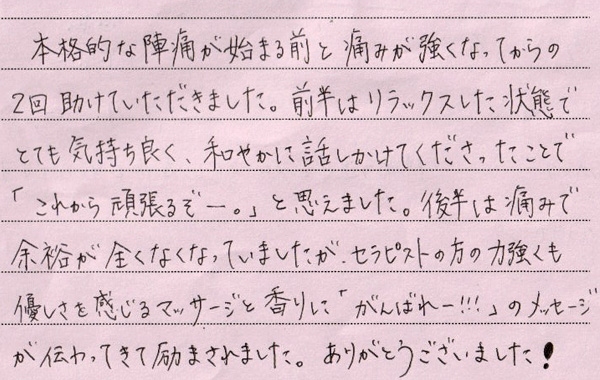 本格的な陣痛が始まる前と痛みが強くなってからの
2回助けていただきました。前半はリラックスした状態で
とても気持ち良く、和やかに話しかけてくださったことで
「これから頑張るぞー。」と思えました。後半は痛みで
余裕が全くなくなっていましたが、セラピストの方の力強くも
優しさを感じるマッサージと香りに「がんばれー!!!」のメッセージ
が伝わってきて励まされました。ありがとうございました!